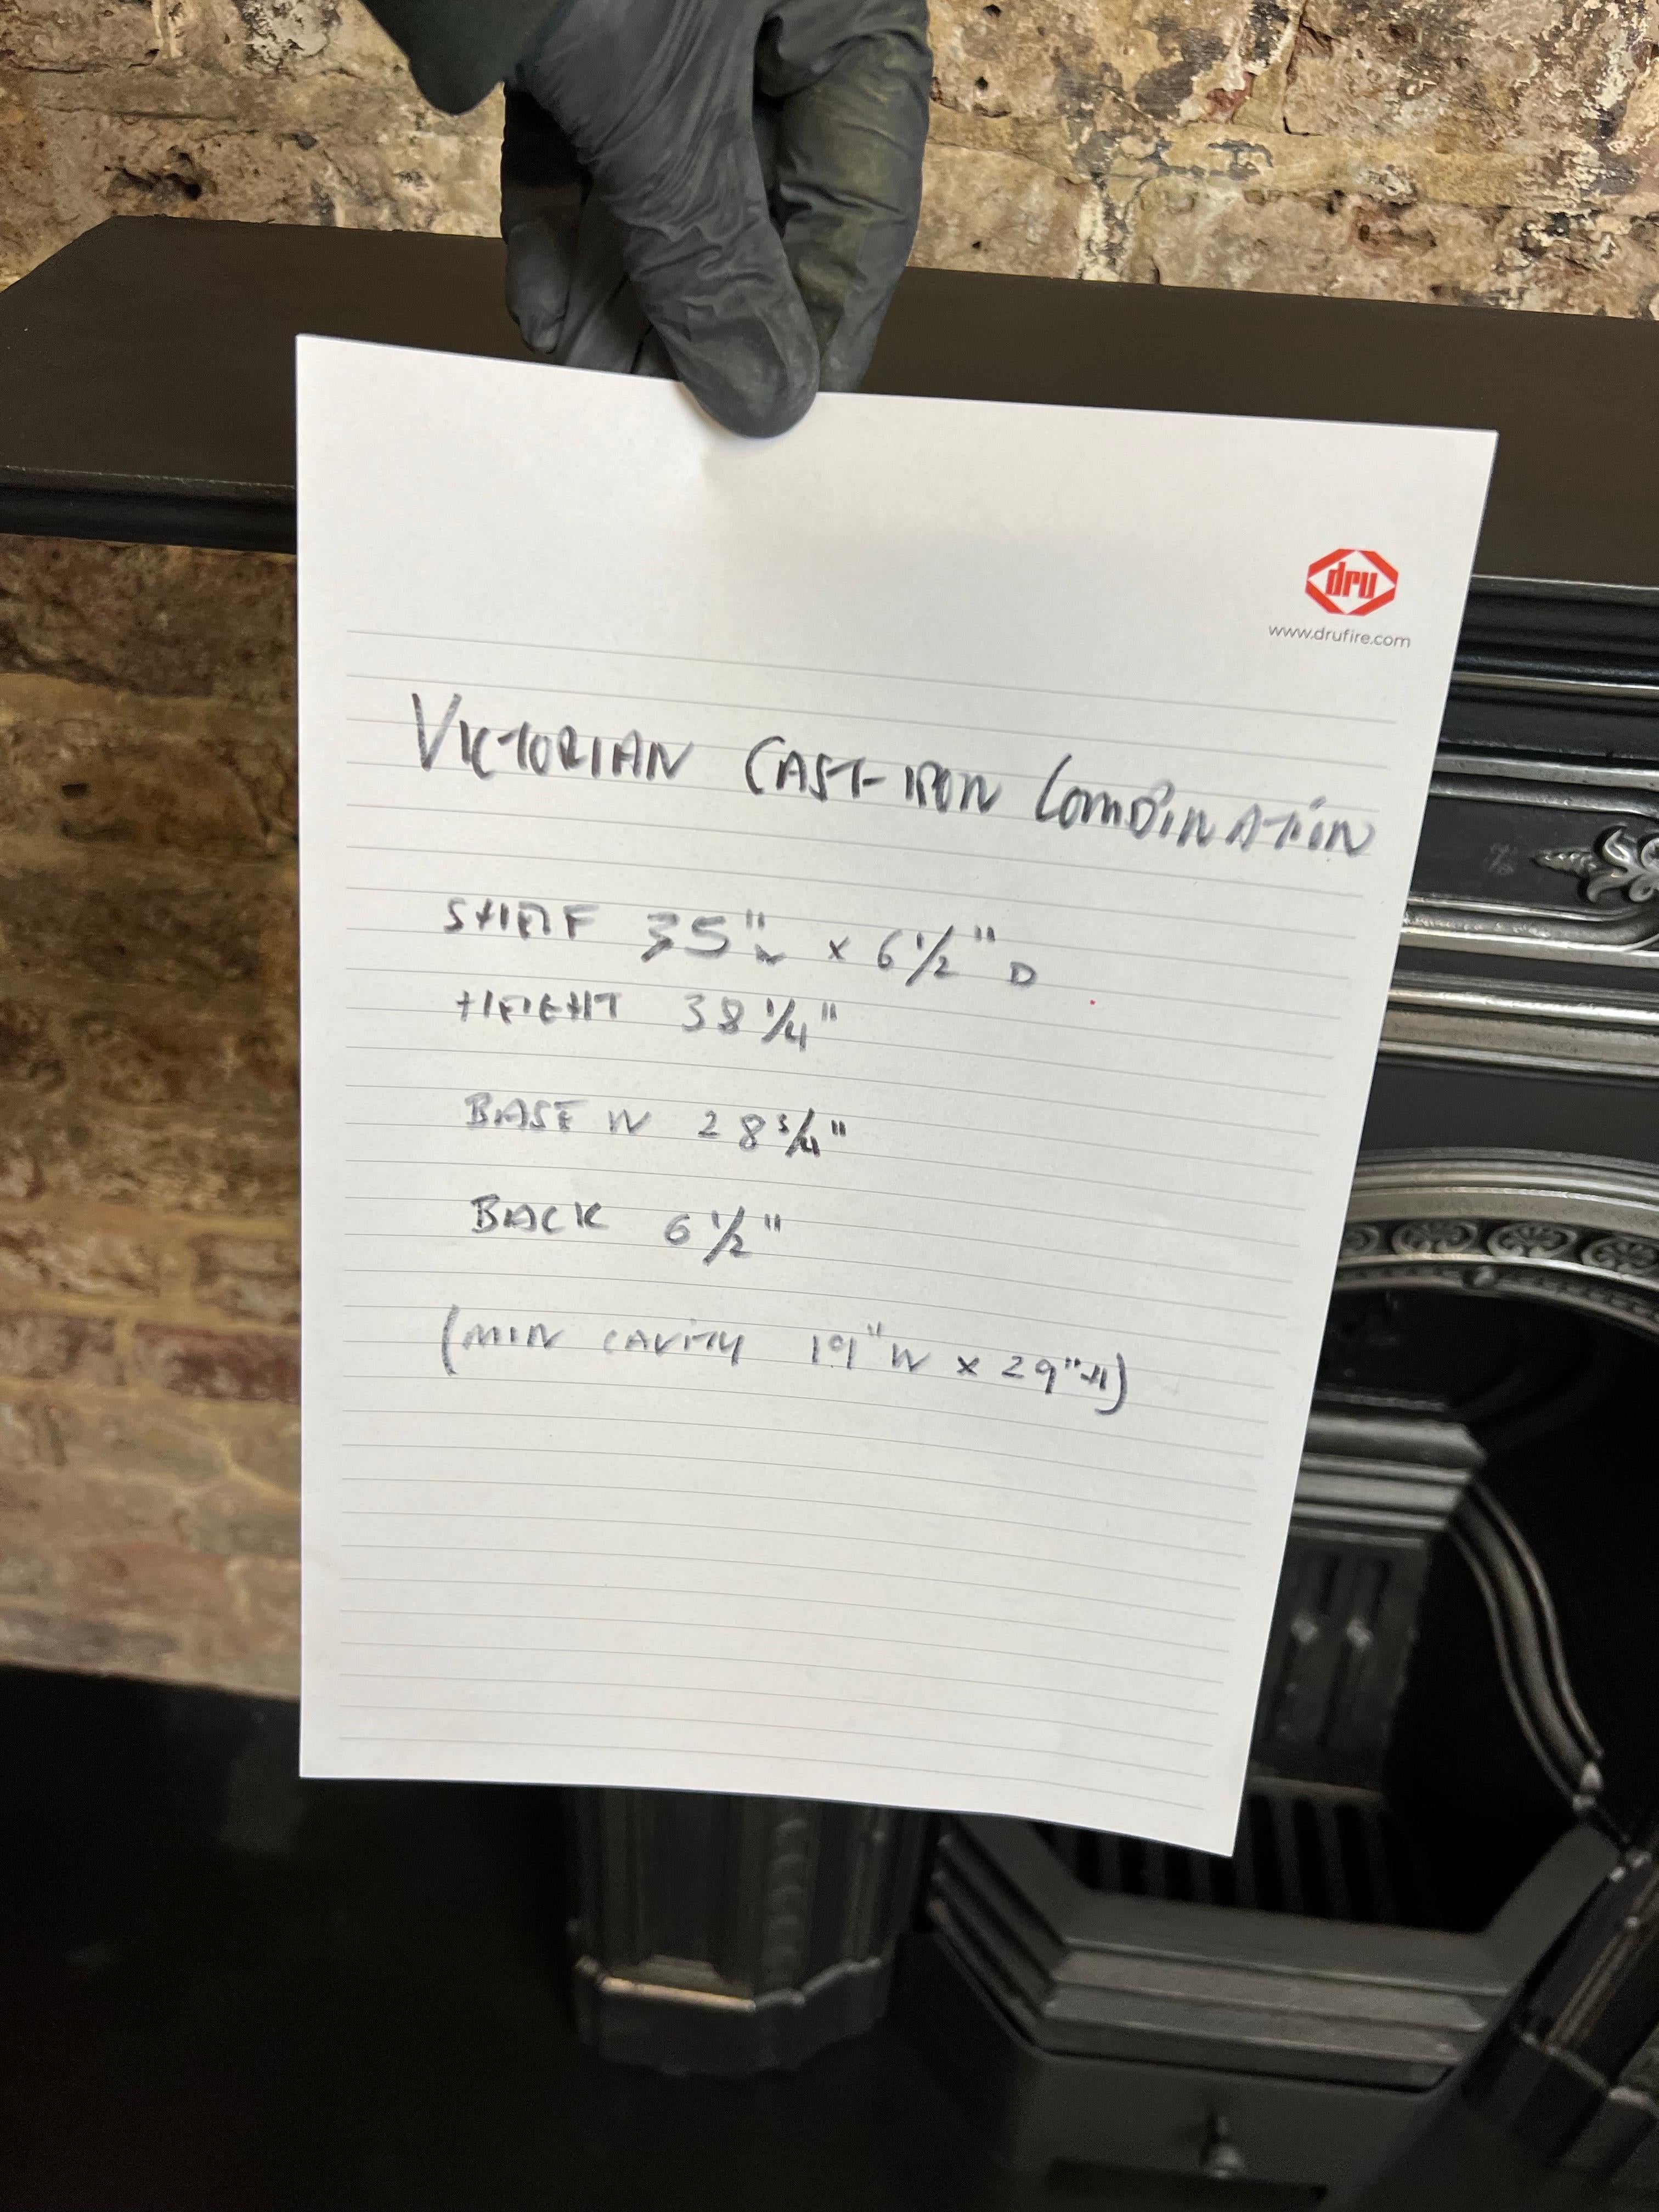 dru
www.drufire.com
VICTORIAN CAST-IRON COMBINATION
SHELF 35"W x 6 1/2" D
HEIGHT 38 1/4"
BASE W 28 3/4"
BACK 6 1/2"
(MIN CAVITY 19"W x 29"H)